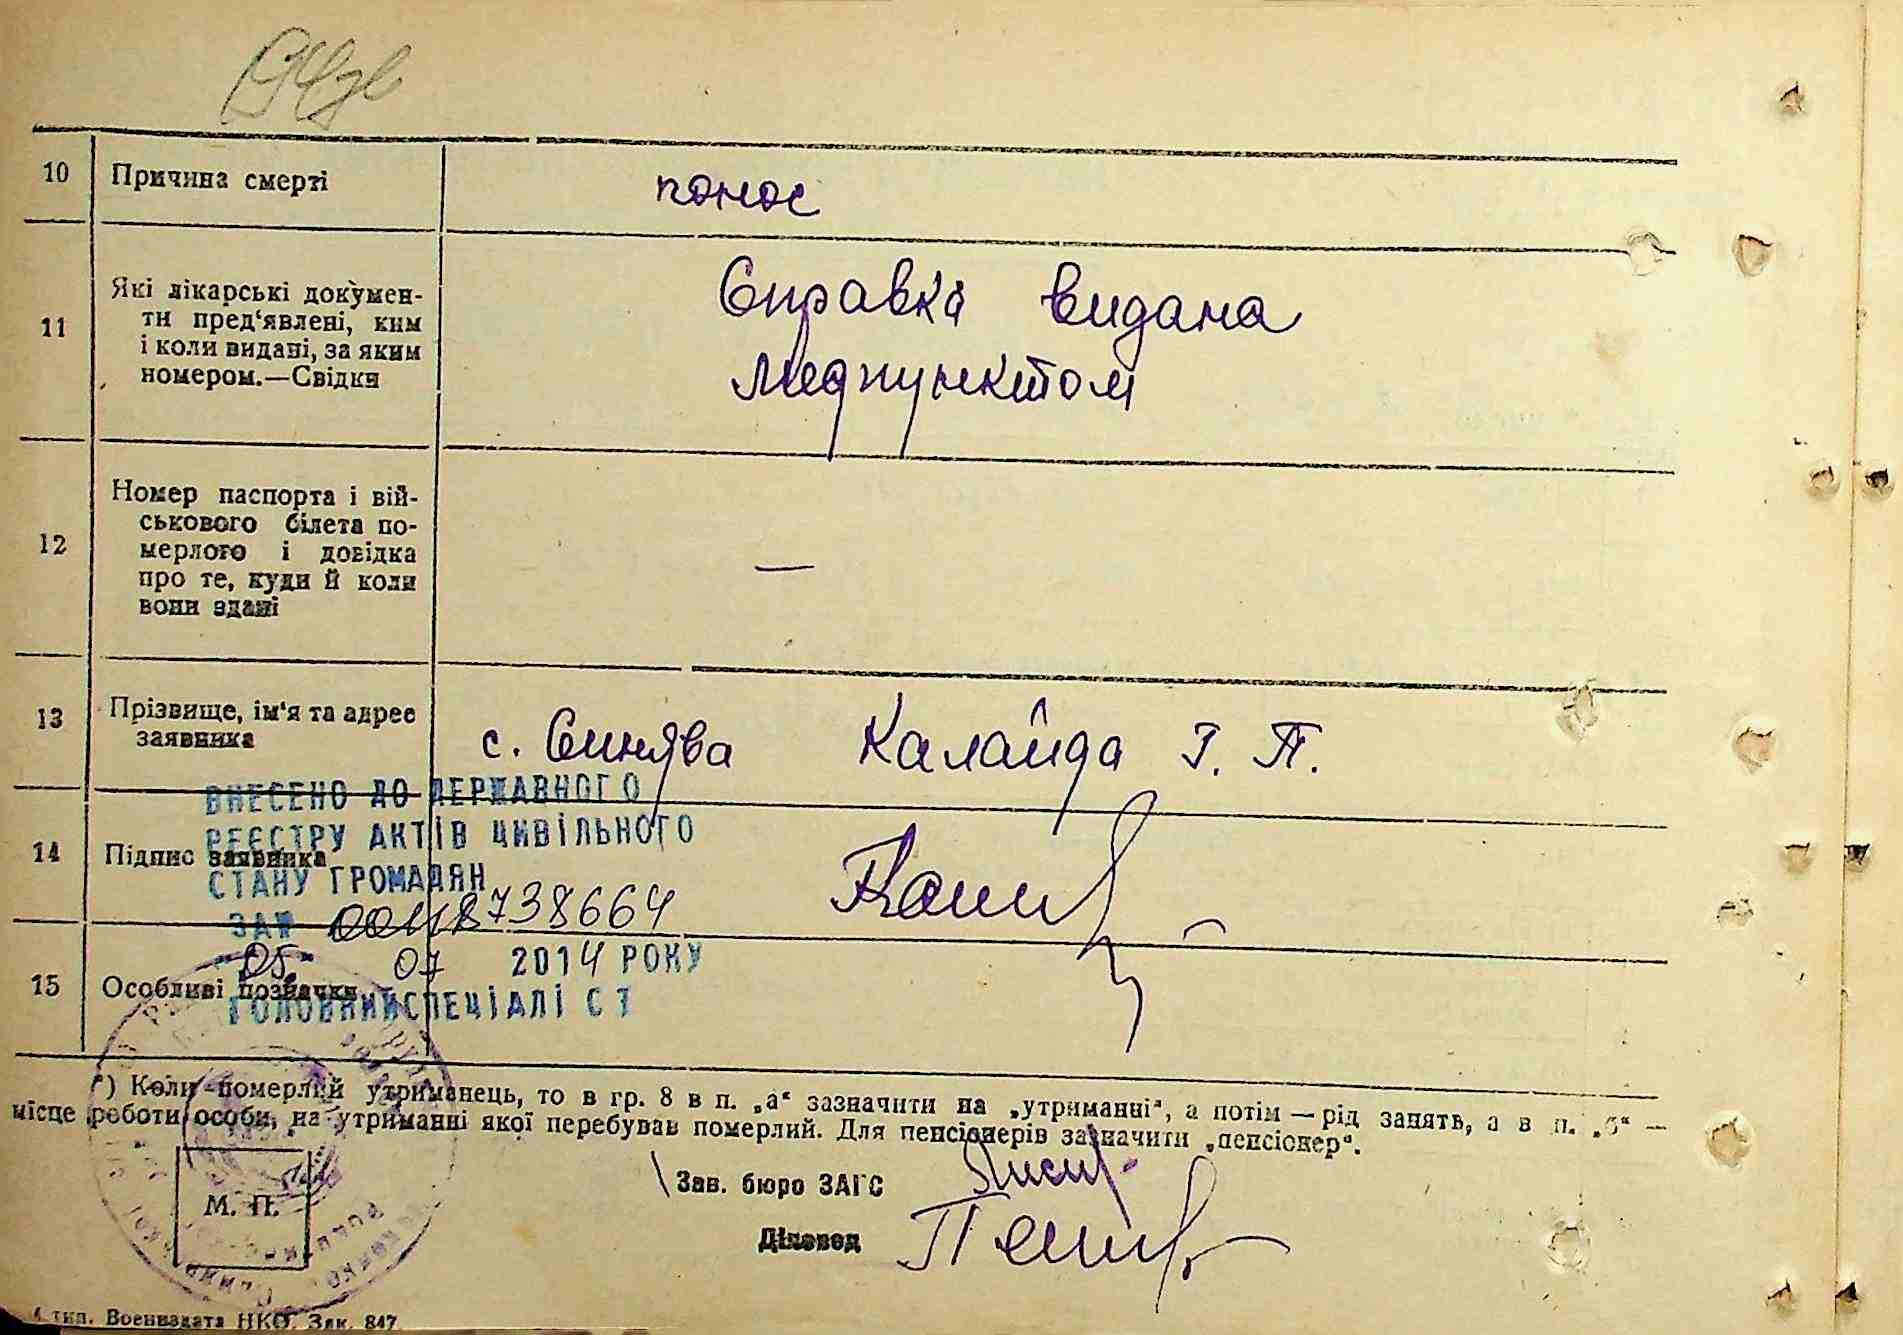 10 Причина смерті понос
11 Які лікарські докумен-
ти пред'явлені, ким
і коли видані, за яким
номером.—Свідки
Справка видана
медпунктом
12 Номер паспорта і вій-
ськового білета по-
мерлого і довідка
про те, куди й коли
вони здані
—
13 Прізвище, ім'я та адрес
заявника
с. Синява Калайда Г. П.
ВНЕСЕНО ДО ДЕРЖАВНОГО
РЕЄСТРУ АКТІВ ЦИВІЛЬНОГО
14 Підпис заявника
СТАНУ ГРОМАДЯН
ЗА № 00118738664
05. 07 2014 РОКУ
15 Особливі позначки
ГОЛОВНИЙ СПЕЦІАЛІСТ
*) Коли померлий утриманець, то в гр. 8 в п. „а“ зазначити на „утриманні“, а потім — рід занять, а в п. „б“ —
місце роботи особи, на утриманні якої перебував померлий. Для пенсіонерів зазначити „пенсіонер“.
Зав. бюро ЗАГС
М. П.
Діловод
тип. Воениздата НКО. Зак. 847